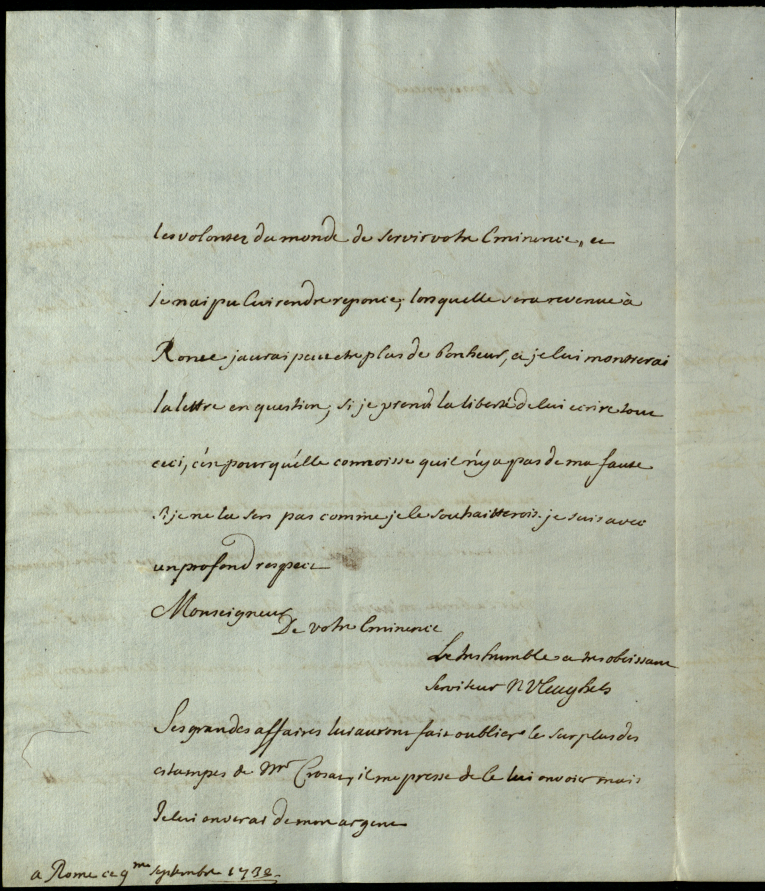 les volontez du monde de servir votre Eminence, et
je nai pu lui rendre reponce, lorsquelle sera revenue à
Rome jaurai peutetre plus de bonheur, et je lui montrerai
la lettre en question, si je prend la liberté de lui ecrire tout
ceci, cést pour qu'elle connoisse quil n'y a pas de ma faute
si je ne la sers pas comme je le souhaitterois. je suis avec
un profond respect
Monseigneur
De votre Eminence
Le tres humble et tres obeissant
Serviteur N Vleughels
Ses grandes affaires lui auront fait oublier le surplus des
estampes de Mr Crosat, il me presse de le lui envoier mais
Je lui enverai de mon argent
a Rome ce 9me septembre 1732.